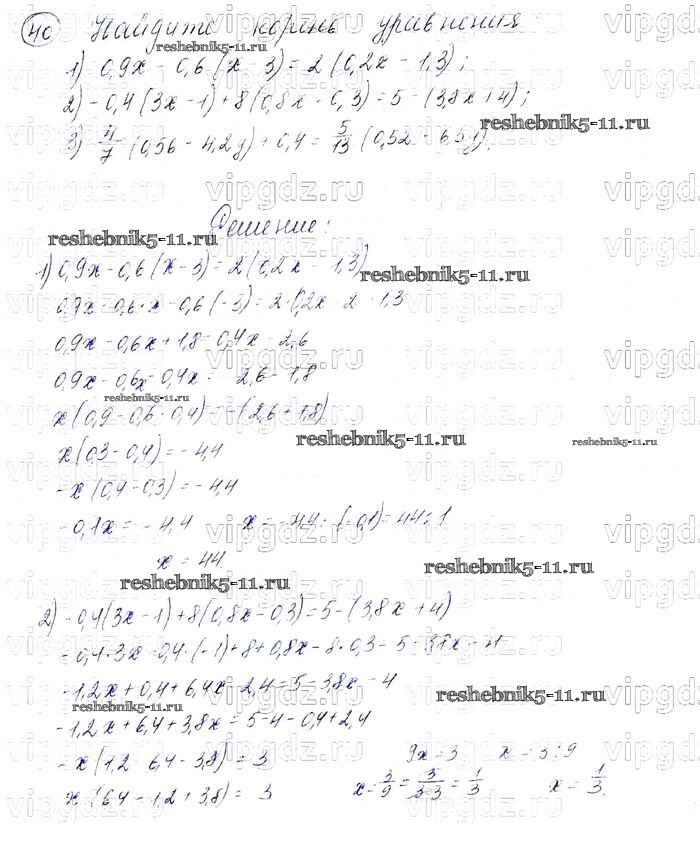 40 Найдите корень уравнения:
reshebnik5-11.ru
1) 0,9x - 0,6(x - 3) = 2(0,2x - 1,3);
2) -0,4(3x - 1) + 8(0,8x - 0,3) = 5 - (3,8x + 4);
reshebnik5-11.ru
3) 4/7 (0,56 - 4,2y) + 0,4 = 5/13 (0,52 - 6,5y).
vipgdz.ru vipgdz.ru vipgdz.ru
Решение:
reshebnik5-11.ru
1) 0,9x - 0,6(x - 3) = 2(0,2x - 1,3)
reshebnik5-11.ru
0,9x - 0,6·x - 0,6(-3) = 2·0,2x 2 1,3
0,9x - 0,6x + 1,8 0,4x 2,6
0,9x - 0,6x 0,4x 2,6 - 1,8
reshebnik5-11.ru
x(0,9 - 0,6 - 0,4) = -(2,6 + 1,8)
reshebnik5-11.ru
reshebnik5-11.ru
x(0,3 - 0,4) = -4,4
-x(0,4 - 0,3) = -4,4
-0,1x = -4,4 x = -4,4 : (-0,1) = 44 : 1
x = 44
reshebnik5-11.ru
reshebnik5-11.ru
2) -0,4(3x - 1) + 8(0,8x - 0,3) = 5 - (3,8x + 4)
-0,4·3x - 0,4·(-1) + 8·0,8x - 8·0,3 = 5 - 3,8x - 4
-1,2x + 0,4 + 6,4x - 2,4 = 5 - 3,8x - 4
reshebnik5-11.ru
reshebnik5-11.ru
-1,2x + 6,4 + 3,8x = 5 - 4 - 0,4 + 2,4
-x(1,2 6,4 - 3,8) = 3 9x = 3 x = 3 : 9
x(6,4 - 1,2 + 3,8) = 3 x = 3/9 = 3/3·3 = 1/3 x = 1/3.